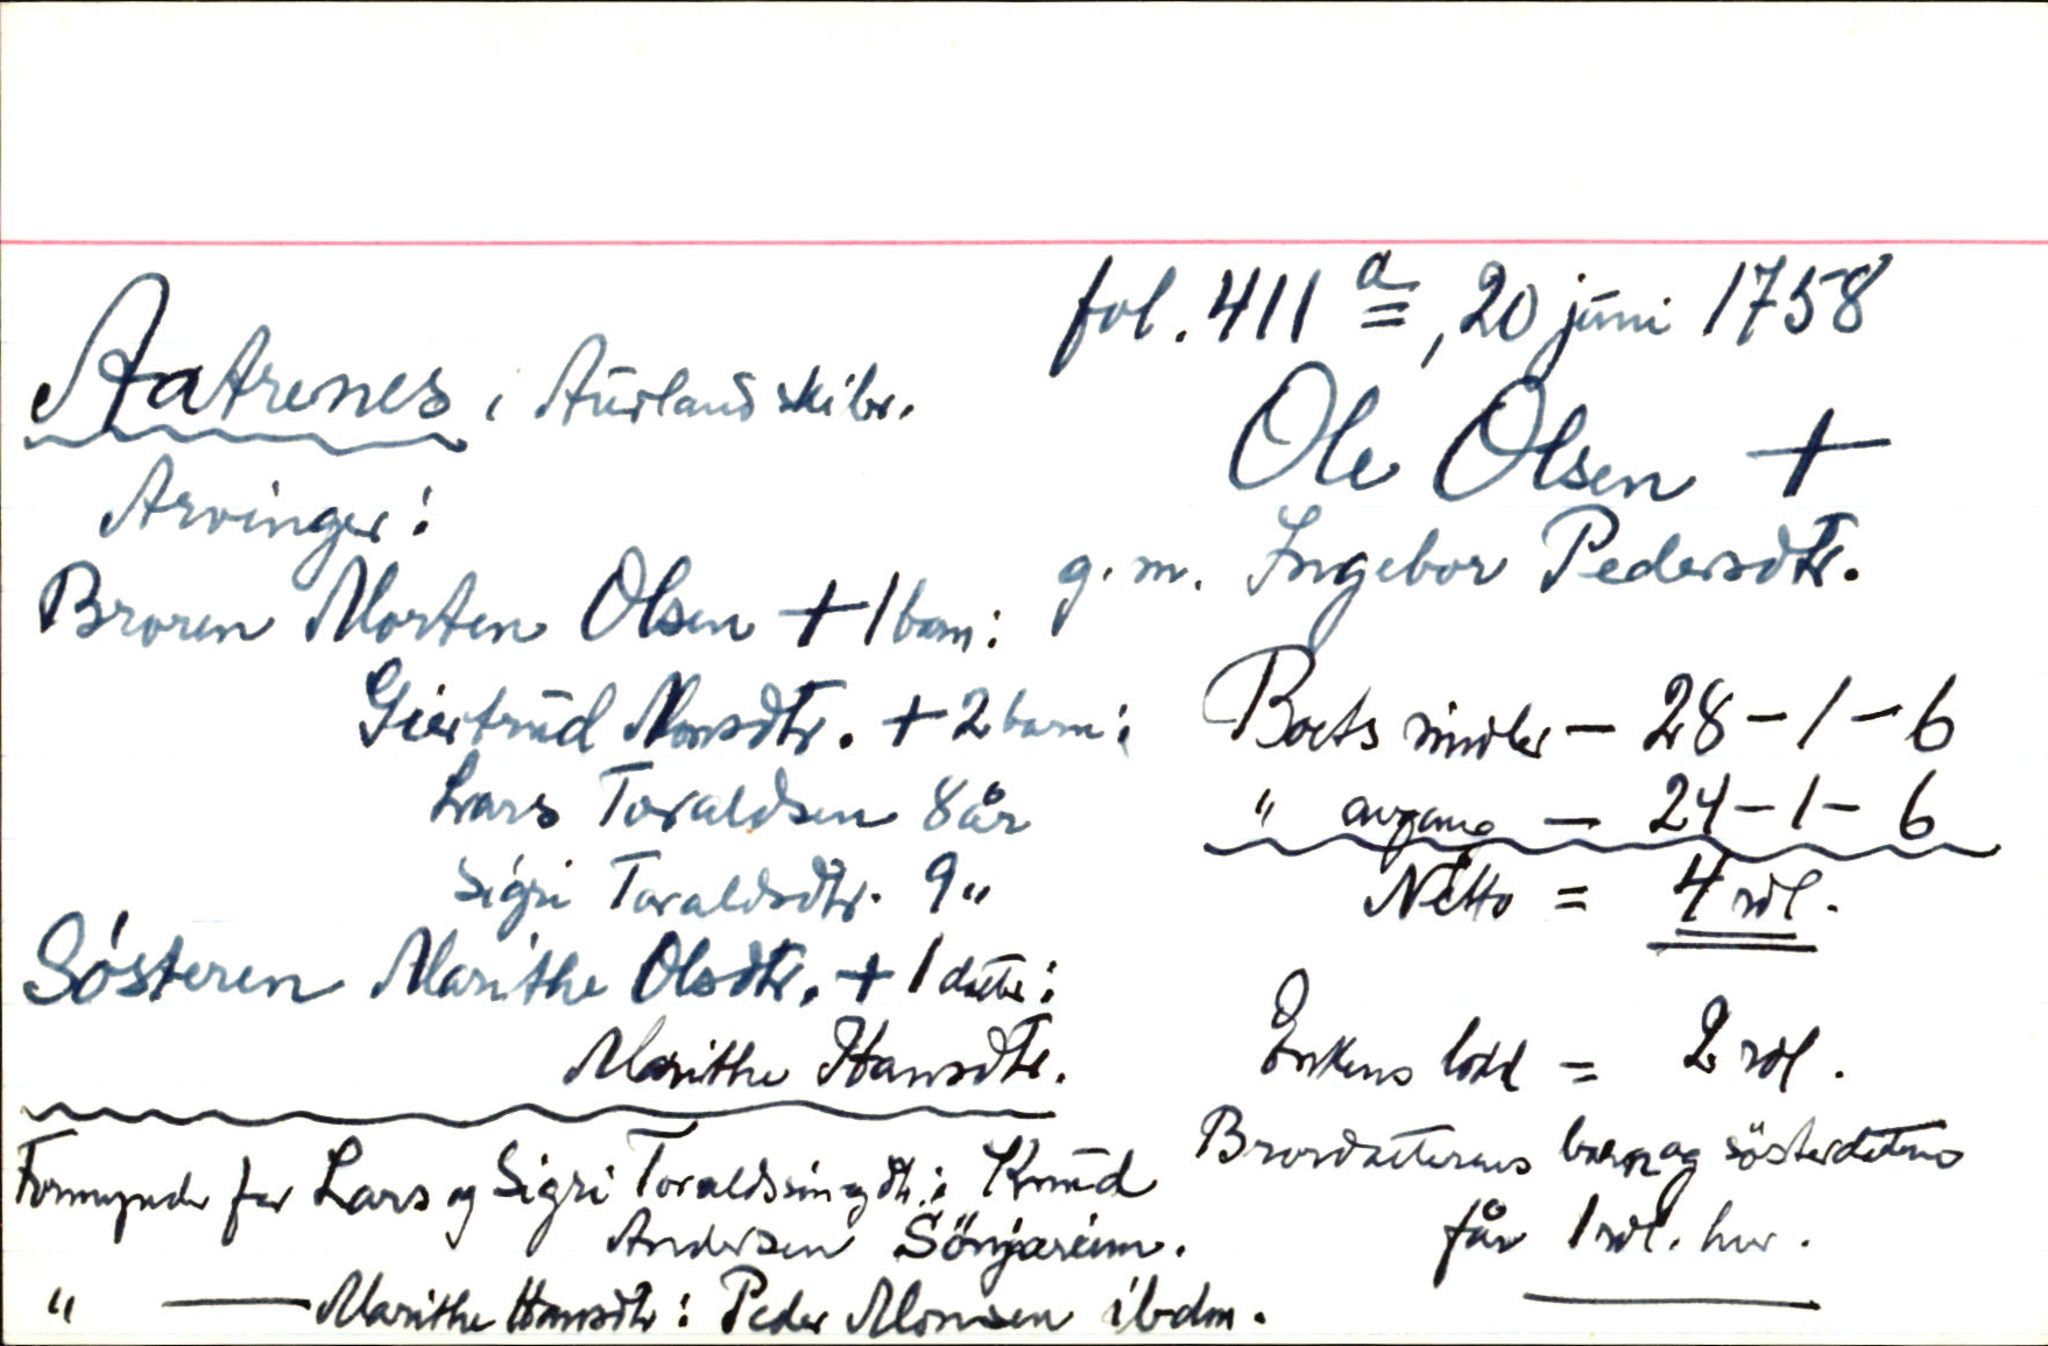 fol. 411 a, 20 juni 1758
Aatrenes i Aurland skibr.
Ole Olsen +
g. m. Ingebor Pedersdtr.
Arvinger:
Broren Morten Olsen + 1 barn:
Giertrud Monsdtr. + 2 barn:
Lars Toraldsen 8 år
Sigri Toraldsdtr. 9 "
Sösteren Marithe Olsdtr. + 1 datter:
Marithe Hansdtr.
Formynder for Lars og Sigri Toraldssøn og dtr.: Knud
Andersen Sönjareim.
" — Marithe Hansdtr: Peder Monsen ibdm.
Boets midler — 28 - 1 - 6
" avgang — 24 - 1 - 6
Netto = 4 rdl.
Enkens lodd = 2 rdl.
Brordatterens barn og sösterdatteren
får 1 rdl. hver.